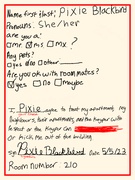 Name first & last: Pixie Blackbird
Pronouns: She/her
are you a:
mr ms mx?
Any pets?
yes no other
Are you ok with room mates?
yes no maybe
I, Pixie agree to treat my apartment, my
neighbours, their apartments, and the Keyper with
respect or the Keyper can
or kick me out of the building
X: Pixie Blackbird Date: 5/5/23
Room number: 210